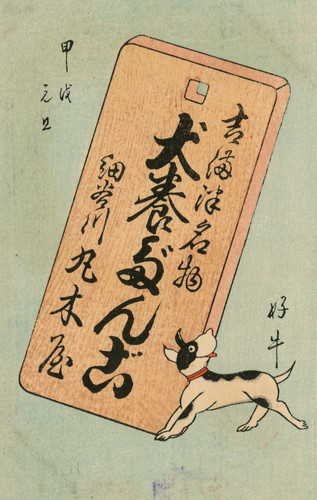 吉備津名物
犬養だんご
細谷川 丸木屋
甲戌
元旦
好牛